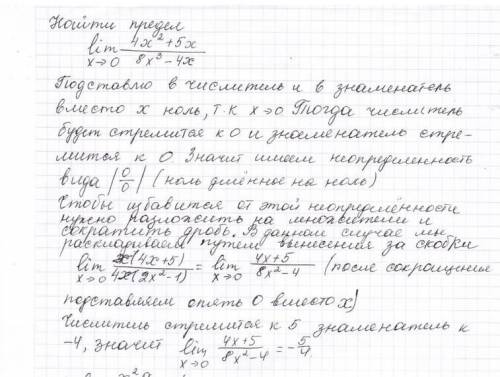 Найти предел
lim x→0 (4x²+5x)/(8x³-4x)
Подставлю в числитель и в знаменатель
вместо x ноль, т.к x→0 Тогда числитель
будет стремится к 0 и знаменатель стре-
мится к 0. Значит имеем неопределенность
вида |0/0| (ноль делённое на ноль)
Чтобы избавится от этой неопределённости
нужно разложить на множители и
сократить дробь. В данном случае мы
раскладываем путем вынесения за скобки
lim x→0 x(4x+5)/4x(2x²-1) = lim x→0 (4x+5)/(8x²-4) (после сокращения
подставляем опять 0 вместо x)
Числитель стремится к 5 знаменатель к
-4, значит lim x→0 (4x+5)/(8x²-4) = -5/4